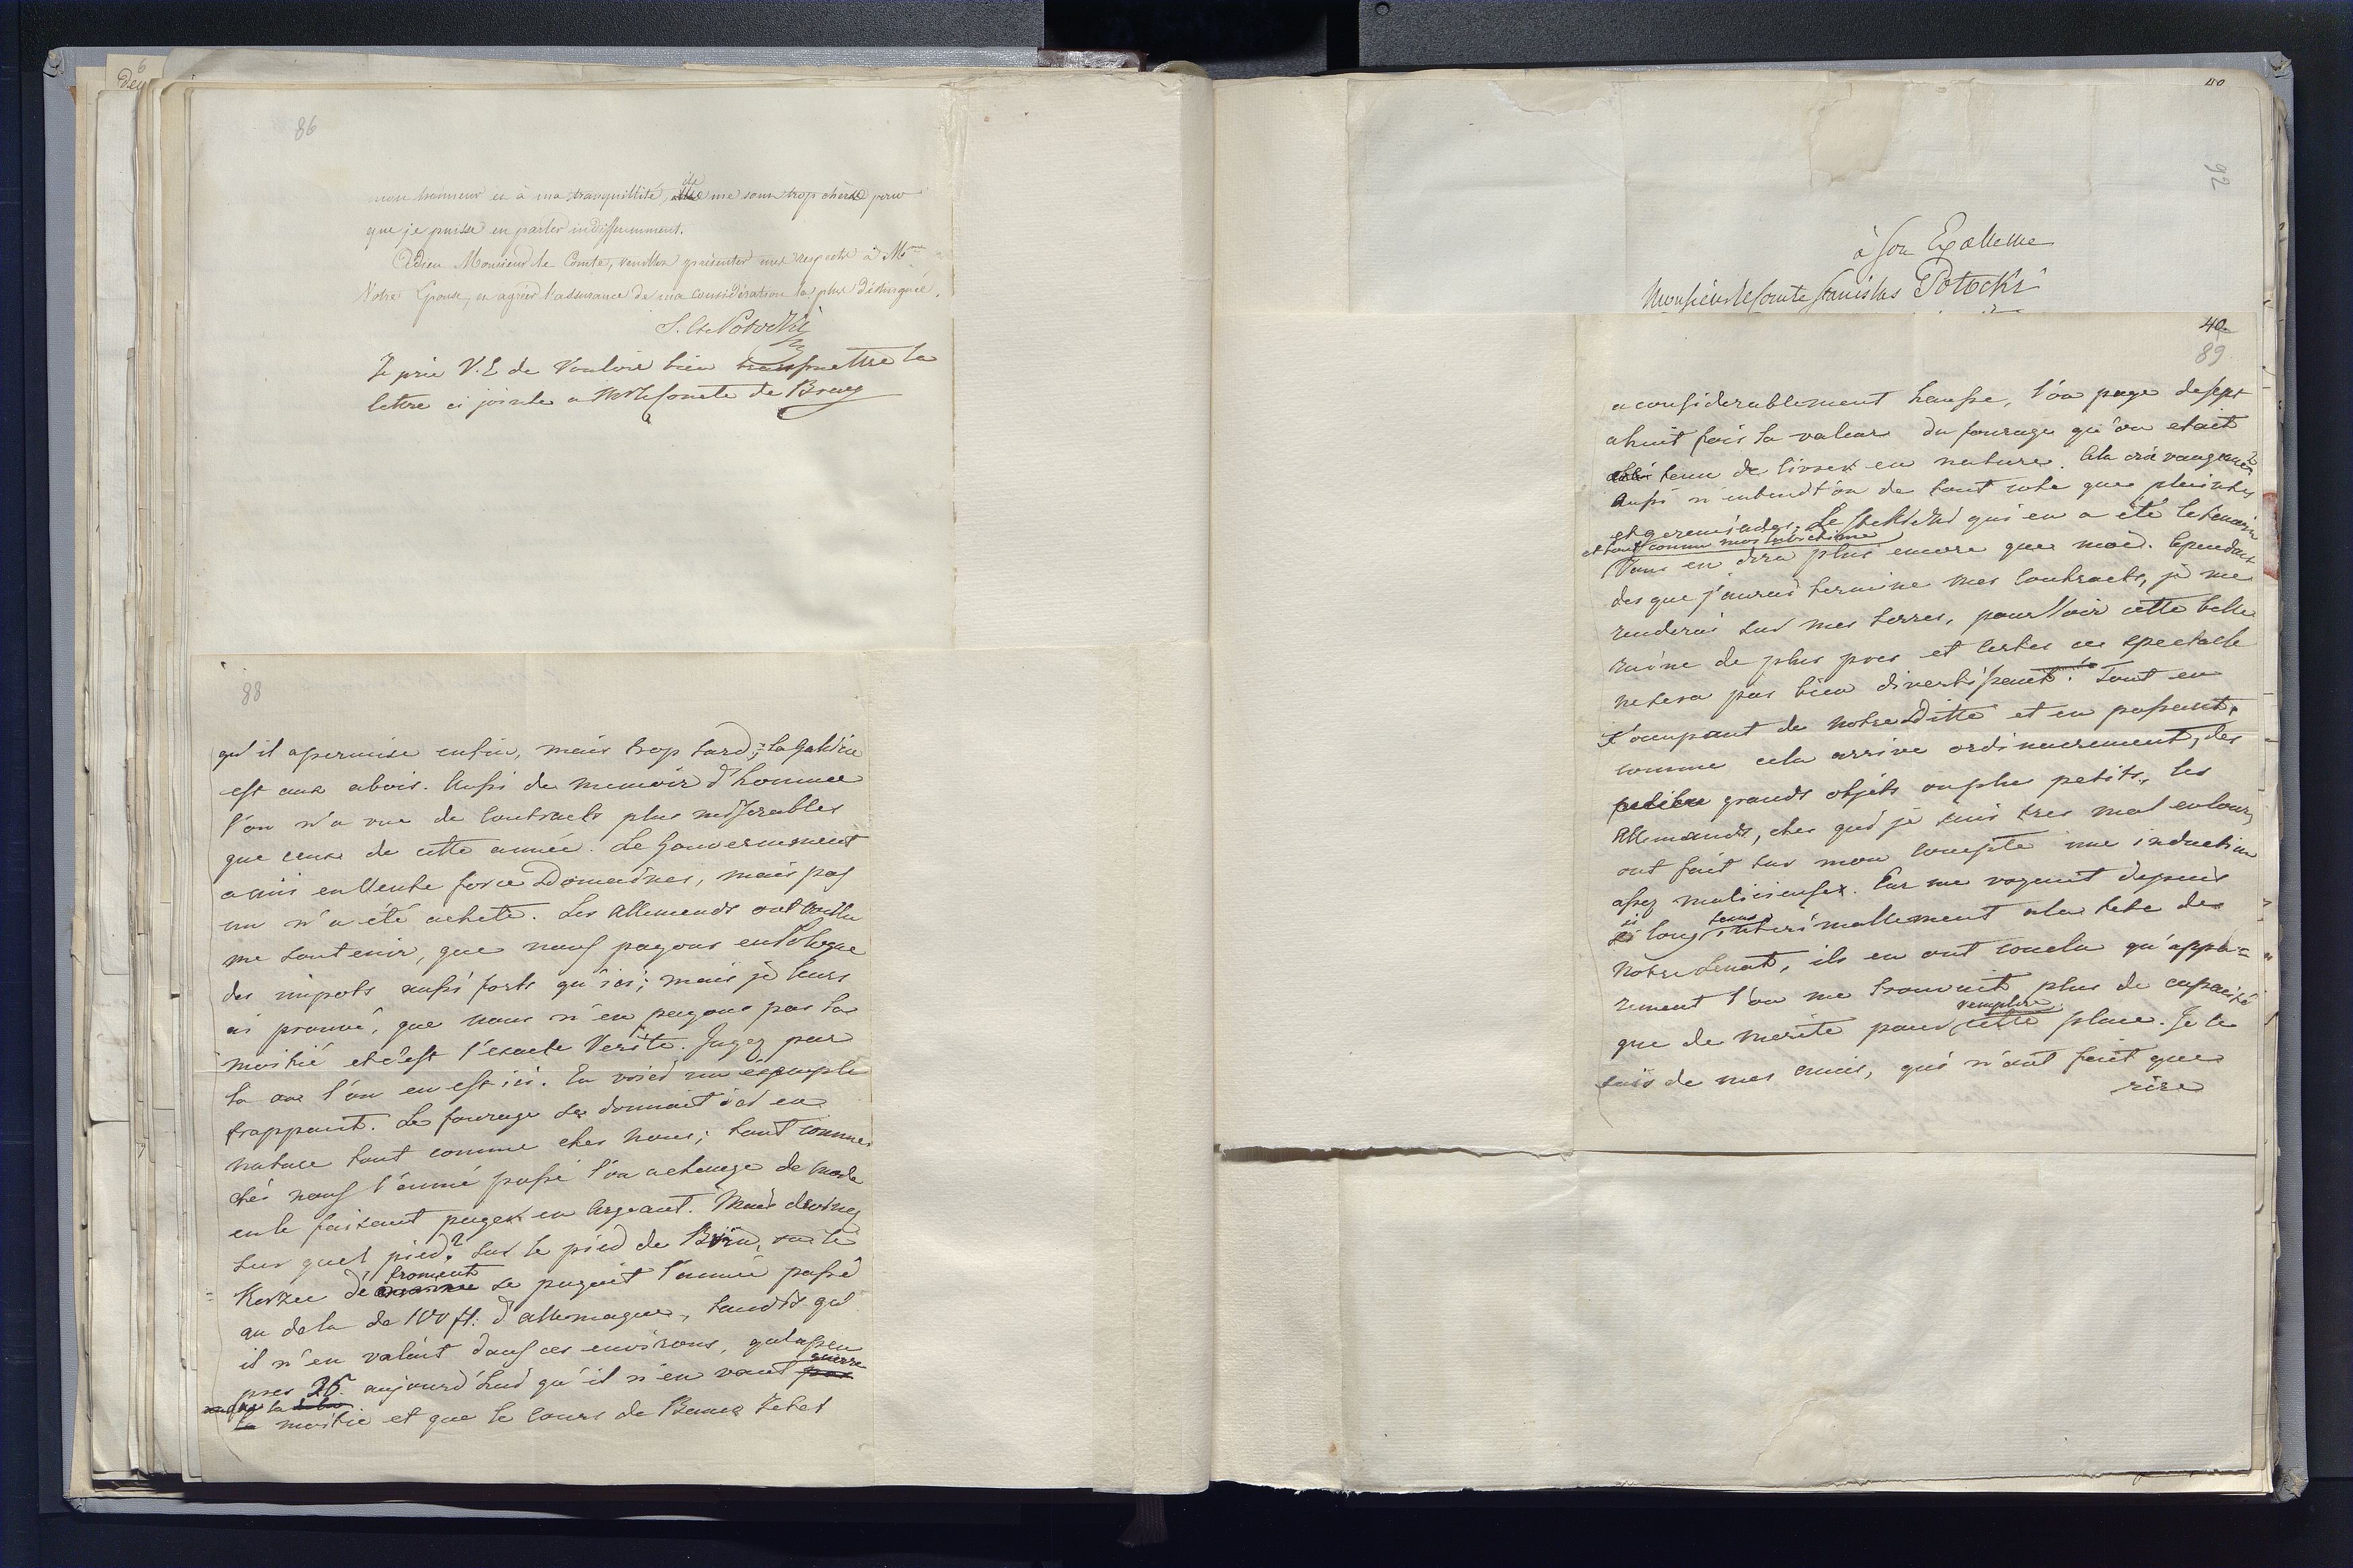 86
mon honneur et à ma tranquillité, ils me sont trop chers pour
que je puisse en parler indifferemment.
Adieu Monsieur le Comte, veuillez présenter mes respects à Mme
Votre Epouse, et agréer l'assurance de ma considération la plus distinguée.
S. Cte Potocki
Je prie V.E de Vouloir bien transmettre la
lettre ci jointe a Mr le Comte de Bray
88
qu'il a permise enfin, mais trop tard; la Galicie
est aux abois. Aussi de memoir d'homme
l'on n'a vue de Contracts plus miserables
que ceux de cette année. Le Gouvernement
a mis en Vente force Domaines, mais pas
un n'a été acheté. Les Allemands ont voulu
me soutenir, que nous payons en Pologne
des impots aussi forts qu'ici; mais je leurs
ai prouvé, que nous n'en payons pas la
moitié et c'est l'exacte Verité. Jugez par
la ou l'on en est ici. En voici un exemple
frappant. Le fourage se donnait ici en
nature tout comme chez nous; tout comme
chés nous l'année passé l'on a change de mode
en le faisant payer en Argeant. Mais devinez
sur quel pied? sur le pied de
Korzec de froment se payait l'année passé
au dela de 100 fl: d'allemagne, tandis qu'
il n'en valait dans ces environs, qu'a peu
pres 25. aujourd'hui qu'il n'en vaut guerre
que la
la moitié et que le cours de Banco Zetel
40
92
à Son Excellence
Monsieur le Comte Stanislas Potocki
40
89
a considerablement hausse, l'on paye de sept
a huit fois la valeur du fourage qu'on etait
tenu de livrer en nature. Cela crie vangeance
Aussi n'entendt'on de tout coté que pleintes
et geremiades. Le qui en a été le temoin
et tout comme moi
Vous en dira plus encore que moi. Cependant
des que j'aurai terminé mes Contracts, je me
renderai sur mes terres, pour Voir cette belle
ruine de plus pres et certes ce spectacle
ne sera pas bien divertissant. Tout en
s'occupant de notre Diette et en passant,
comme cela arrive ordinairement, des
grands objets aux plus petits, les
Allemands, chez qui je suis tres mal en cour,
ont fait sur mon compte une induction
assez malicieuse. Car me voyant depuis
si long tems interimallement a la tete de
notre Senat, ils en ont conclu qu'appa=
rement l'on me trouvait plus de capacité
que de merite pour remplire cette place. Je le
sais de mes amis, qui n'ont fait que
rire